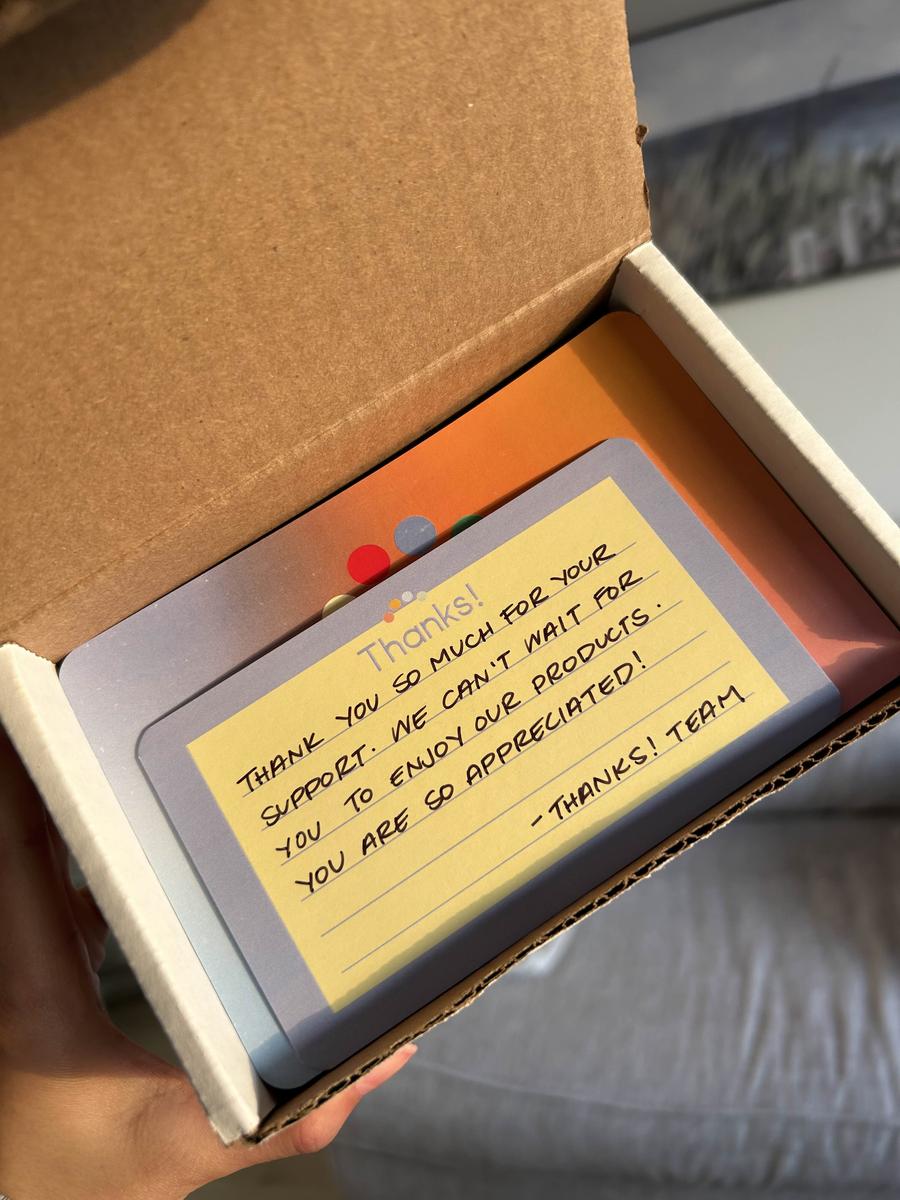 Thanks!
THANK YOU SO MUCH FOR YOUR
SUPPORT. WE CAN'T WAIT FOR
YOU TO ENJOY OUR PRODUCTS.
YOU ARE SO APPRECIATED!
-THANKS! TEAM